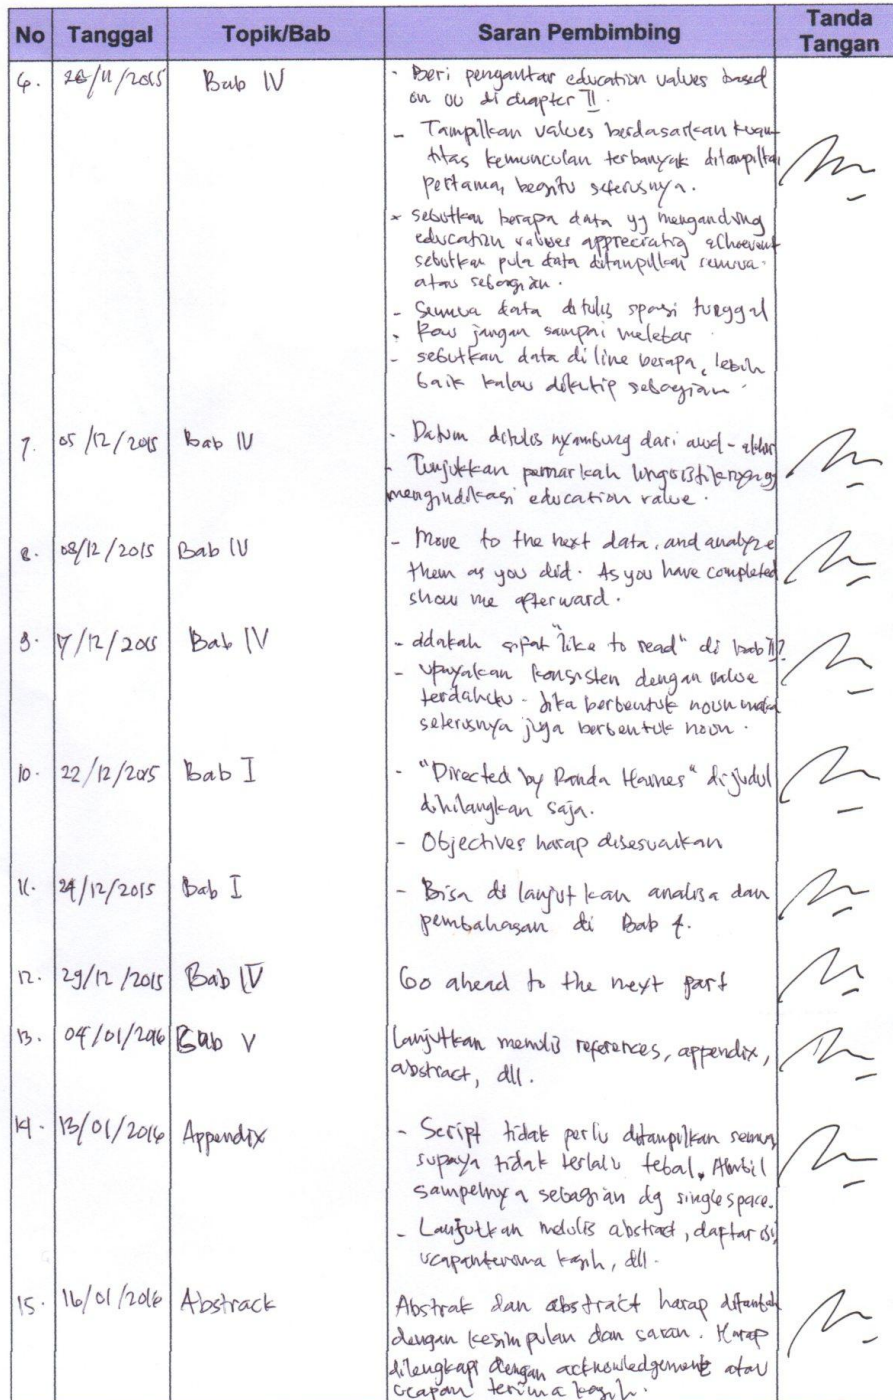 No Tanggal Topik/Bab Saran Pembimbing Tanda Tangan
6. 26/11/2015 Bab IV - Beri pengantar education values based
on di chapter II.
- Tampilkan values berdasarkan kuan
titas kemunculan terbanyak ditampilkan
pertama, begitu seterusnya.
* sebutkan berapa data yg mengandung
education values appreciating
sebutkan pula data ditampilkan semua
atau sebagian.
- Semua data ditulis spasi tunggal
- Row jangan sampai melebar
- sebutkan data di line berapa, lebih
baik kalau dikutip sebagian.
7. 05/12/2015 Bab IV - Datum ditulis nyambung dari awal - akhir
- Tunjukkan pemarkah linguistiknya yg
mengindikasi education value.
8. 08/12/2015 Bab IV - Move to the next data, and analyze
them as you did. As you have completed
show me afterward.
9. 17/12/2015 Bab IV - adakah sifat "like to read" di bab II?
- upayakan konsisten dengan value
terdahulu - jika berbentuk noun maka
seterusnya juga berbentuk noun.
10. 22/12/2015 Bab I - "Directed by Randa Haines" di judul
dihilangkan saja.
- Objectives harap disesuaikan
11. 24/12/2015 Bab I - Bisa di lanjutkan analisa dan
pembahasan di Bab 4.
12. 29/12/2015 Bab IV Go ahead to the next part
13. 04/01/2016 Bab V Lanjutkan menulis references, appendix,
abstract, dll.
14. 13/01/2016 Appendix - Script tidak perlu ditampilkan semua
supaya tidak terlalu tebal. Ambil
sampelnya sebagian dg single space.
- Lanjutkan menulis abstract, daftar isi,
ucapan terima kasih, dll.
15. 16/01/2016 Abstrack Abstrak dan abstract harap ditambah
dengan kesimpulan dan saran. Harap
dilengkapi dengan acknowledgement atau
ucapan terima kasih.